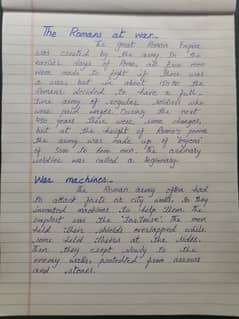 The Romans at war...
The great Roman Empire
was created by the army. In the
earlier days of Rome, all two men
were made to fight if there was
a war, but in about 100 BC the
Romans decided to have a full-
time army of regular soldiers who
were paid wages. During the next
400 years there were some changes,
but at the height of Rome's power
the army was made up of "legions"
of 5000 to 6000 men. The ordinary
soldier was called a legionary.
War machines...
The Roman army often had
to attack forts or city walls, so they
invented machines to help them. The
simplest was the "Tortoise". The men
held their shields overlapped while
some held theirs at the sides.
Then they crept slowly to the
enemy walls, protected from arrows
and stones.